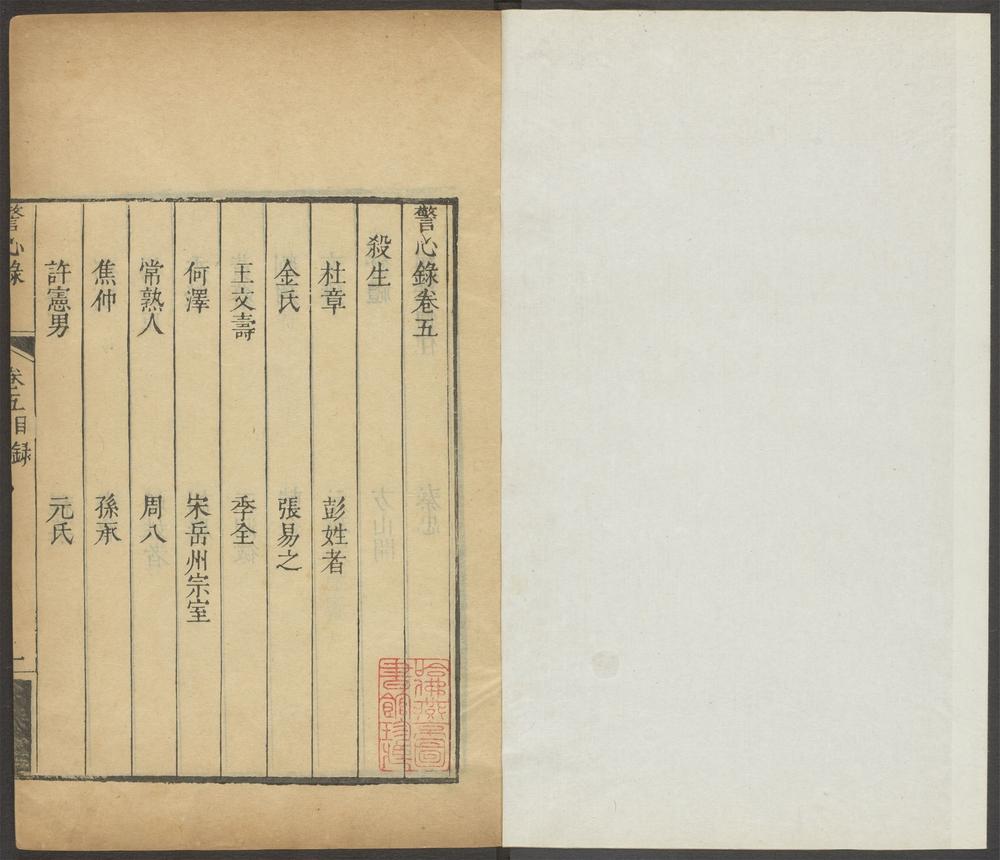 警心錄卷五
殺生
杜章　彭姓者
金氏　張易之
王文壽　季全
何澤　宋岳州宗室
常熟人　周八
焦仲　孫承
許憲男　元氏
警心錄　卷五目録
哈佛燕京圖書館珍藏